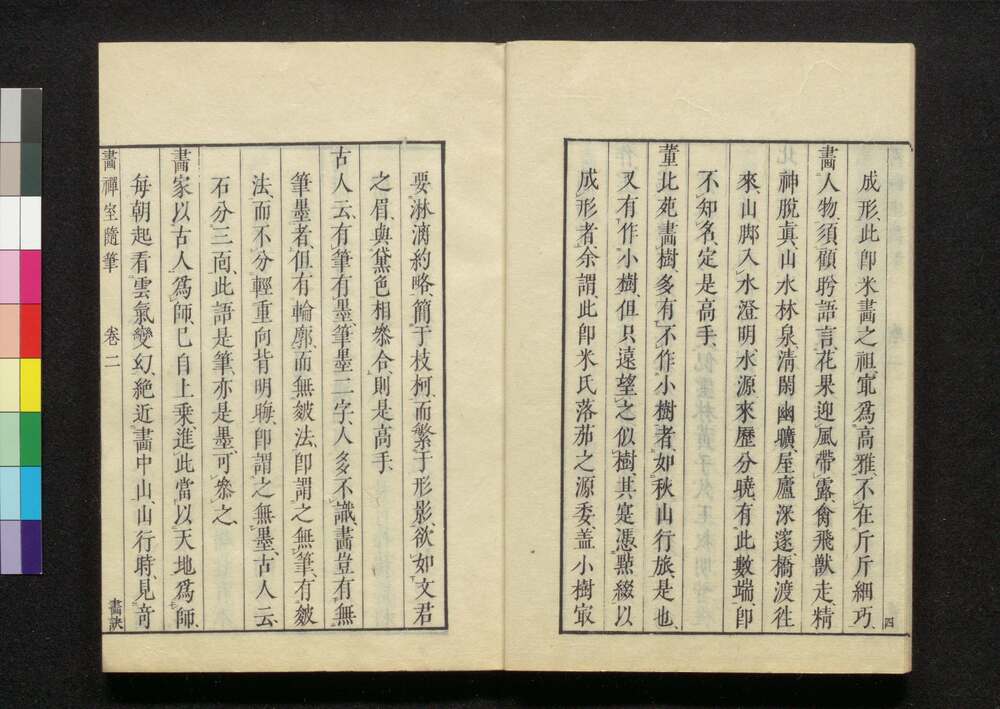 四
成形、此卽米畫之祖、㝡爲高雅、不在斤斤細巧、
畵人物、須顧盻語言、花果迎風帶露、禽飛獸走、精
神脫眞、山水林泉、淸閑幽曠、屋廬深邃、橋渡徃
來、山脚入水澄明、水源來歷分曉、有此數端、卽
不知名、定是高手、
董北苑畵樹、多有不作小樹者、如秋山行旅是也、
又有作小樹、但只遠望之似樹、其寔憑㸃綴以
成形者、余謂、此卽米氏落茄之源委、蓋小樹㝡
要淋漓約略、簡于枝柯、而繁于形影、欲如文君
之眉、與黛色相叅合、則是高手、
古人云、有筆有墨、筆墨二字、人多不識、畵豈有無
筆墨者、但有輪廓、而無皴法、卽謂之無筆、有皴
法、而不分輕重向背明晦、卽謂之無墨、古人云、
石分三面、此語是筆、亦是墨、可叅之、
畵家以古人爲師、巳自上乘、進此當以天地爲師、
每朝起看雲氣變幻、絕近畵中山、山行時、見竒
畵禪室隨筆 卷二 畵訣